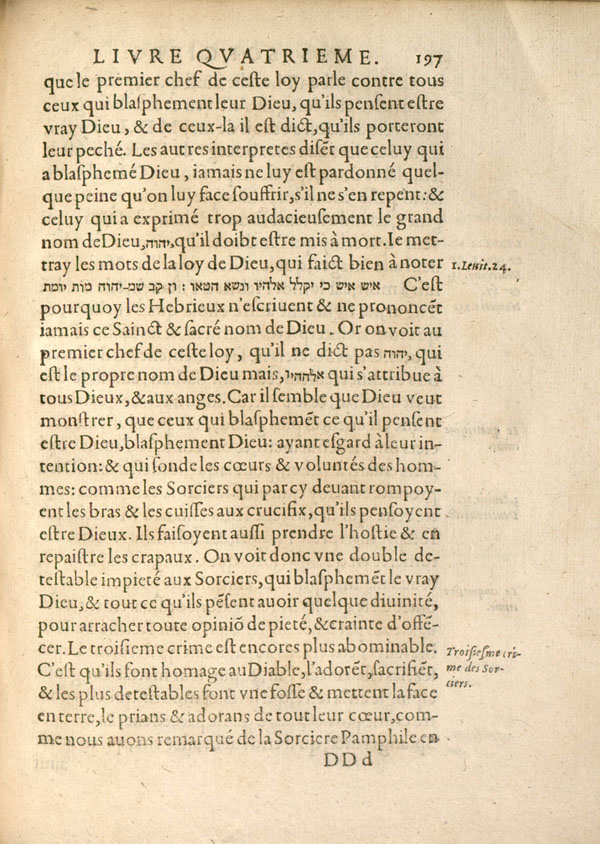 LIVRE QVATRIEME. 197
que le premier chef de ceste loy parle contre tous
ceux qui blasphement leur Dieu, qu'ils pensent estre
vray Dieu, & de ceux-la il est dict, qu'ils porteront
leur peché. Les autres interpretes disẽt que celuy qui
a blasphemé Dieu, iamais ne luy est pardonné quel-
que peine qu'on luy face souffrir, s'il ne s'en repent: &
celuy qui a exprimé trop audacieusement le grand
nom de Dieu, יהוה, qu'il doibt estre mis à mort. Ie met-
tray les mots de la loy de Dieu, qui faict bien à noter
1. Leuit. 24.
איש איש כי יקלל אלהיו ונשא חטאו : ון קב שם-יהוה מות יומת C'est
pourquoy les Hebrieux n'escriuent & ne prononcẽt
iamais ce Sainct & sacré nom de Dieu. Or on voit au
premier chef de ceste loy, qu'il ne dict pas יהוה, qui
est le propre nom de Dieu mais, אלההיו qui s'attribue à
tous Dieux, & aux anges. Car il semble que Dieu veut
monstrer, que ceux qui blasphemẽt ce qu'il pensent
estre Dieu, blasphement Dieu: ayant esgard à leur in-
tention: & qui sonde les cœurs & voluntés des hom-
mes: comme les Sorciers qui par cy deuant rompoy-
ent les bras & les cuisses aux crucifix, qu'ils pensoyent
estre Dieux. Ils faisoyent aussi prendre l'hostie & en
repaistre les crapaux. On voit donc vne double de-
testable impieté aux Sorciers, qui blasphemẽt le vray
Dieu, & tout ce qu'ils pẽsent auoir quelque diuinité,
pour arracher toute opiniõ de pieté, & crainte d'offẽ-
cer. Le troisieme crime est encores plus abominable.
Troisiesme cri-
me des Sor-
ciers.
C'est qu'ils font homage au Diable, l'adorẽt, sacrifiẽt,
& les plus detestables font vne fosse & mettent la face
en terre, le prians & adorans de tout leur cœur, com-
me nous auons remarqué de la Sorciere Pamphile en
DDd